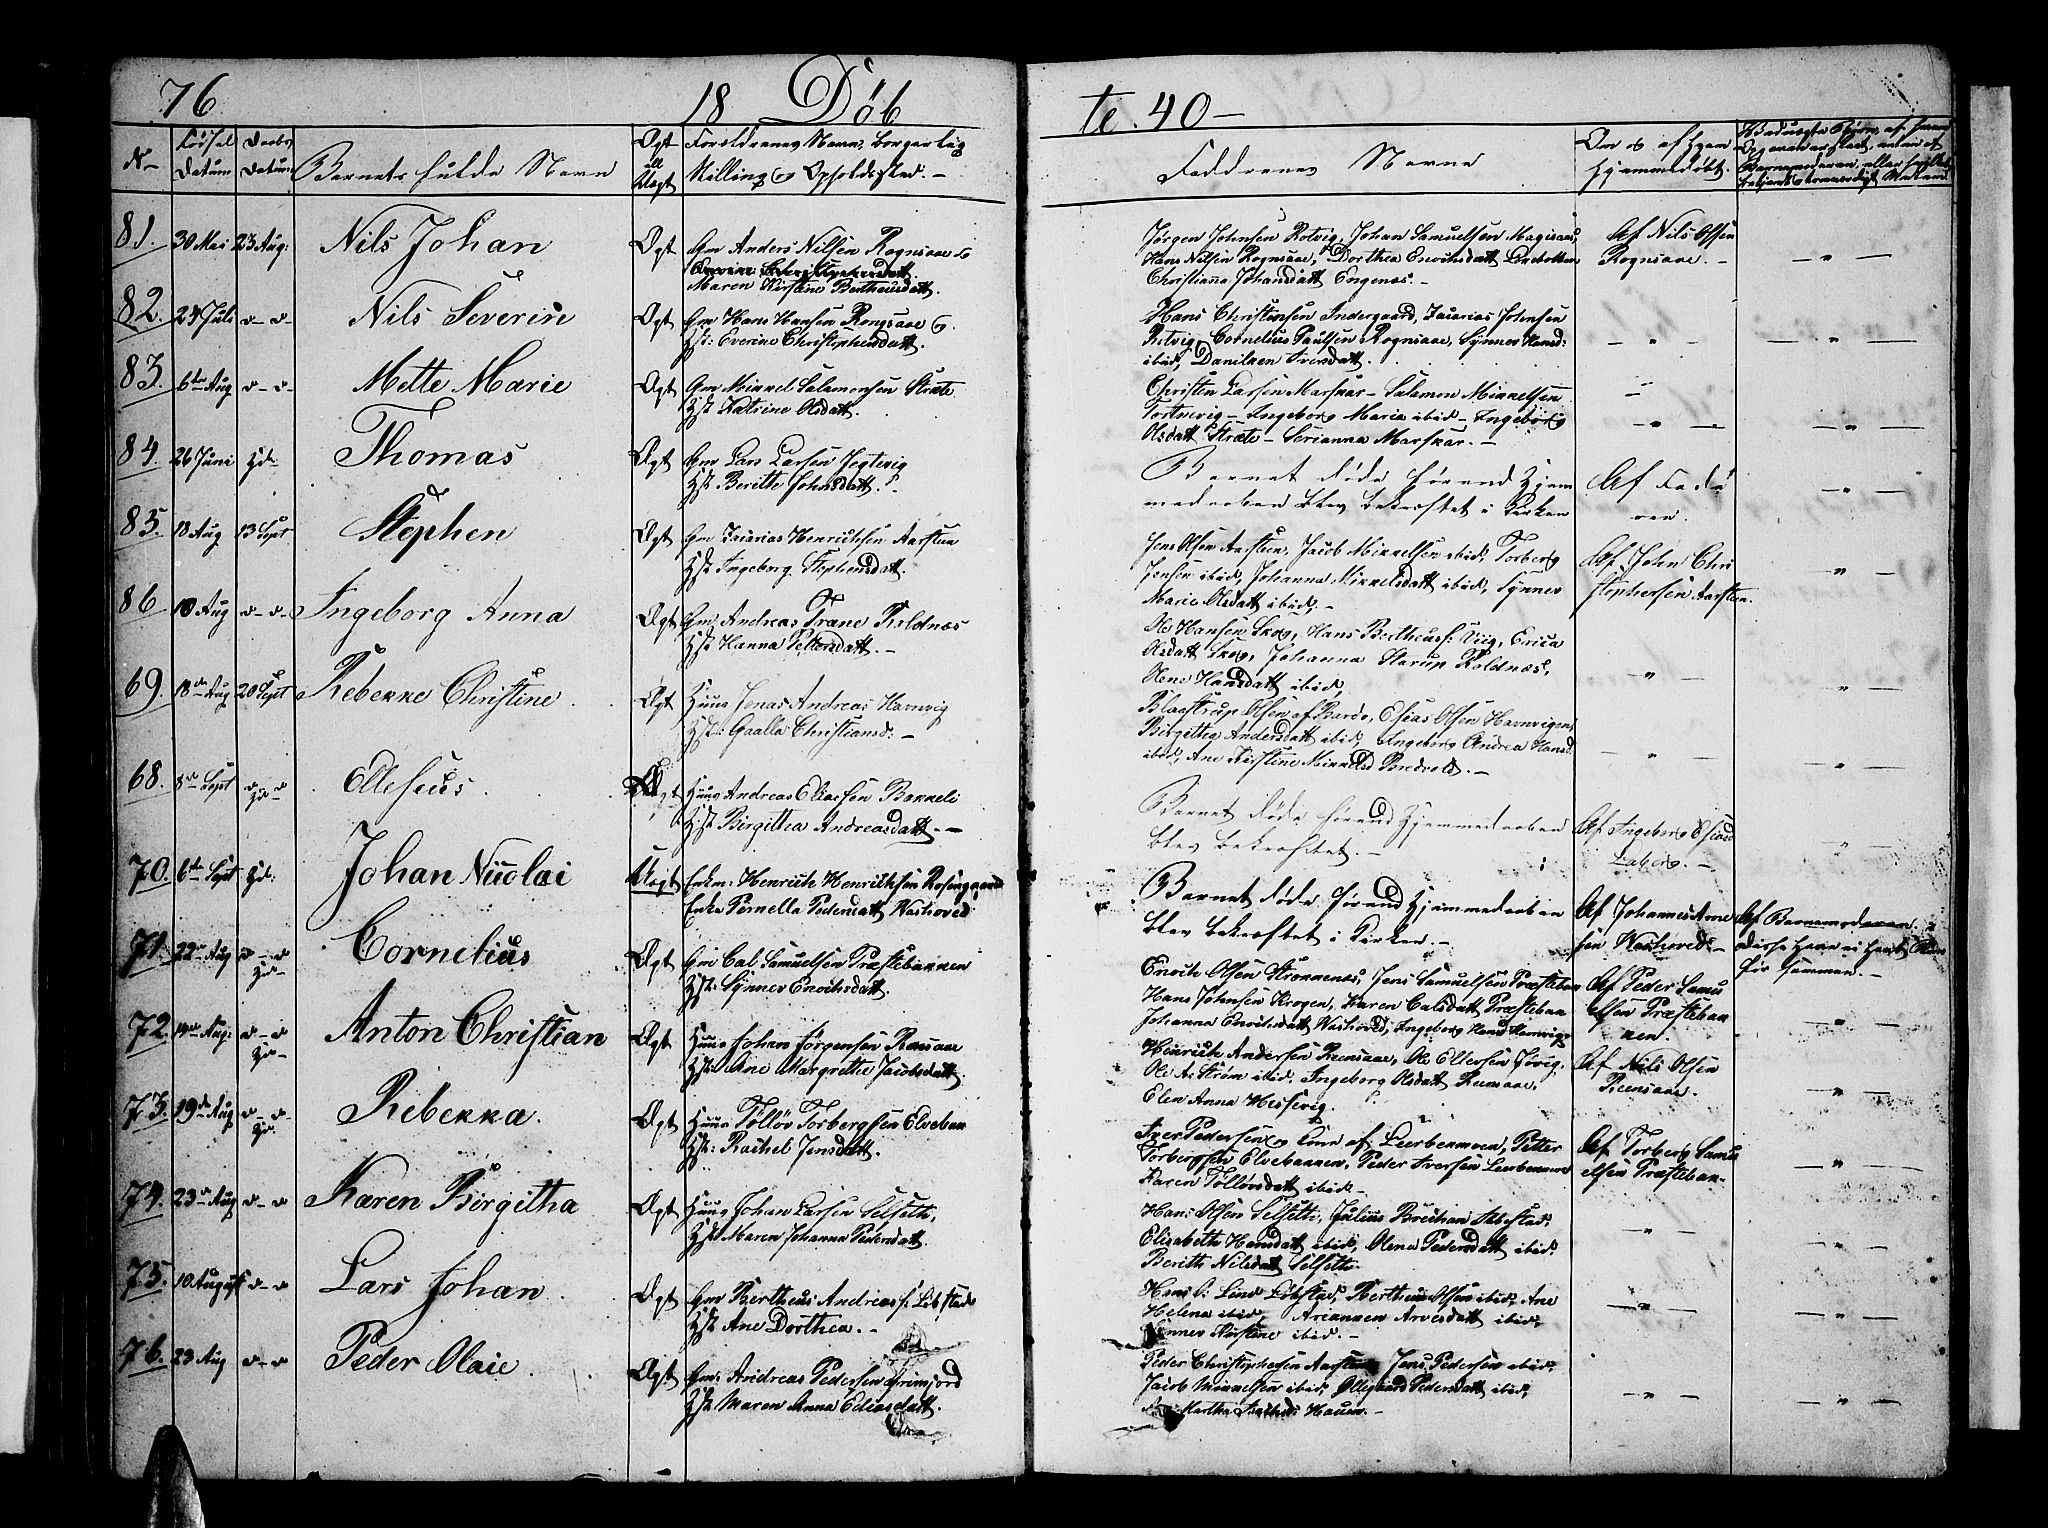 76
18 Døb
te. 40 -
N-
Fødsel
Datum
Daabs
Datum
Barnets fulde Navn
Ægt
ell
Uægt
Foreldrenes Navn, borgerlig
Stilling og Opholdssted. -
Faddrenes Navne
Om og af hvem
hjemmedøbt.
81. 30 Mai 23 Aug: Nils Johan Ægt Gm Anders Nilsen Rognsaae &
Maren Kirstine Bertheusdatt.
Jørgen Johnsen Rotvig, Johan Samuelsen Magisaas,
Hans Nilsen Rognsaae, Dorthea Enochsdatt
Christianna Johansdatt Engenæs. -
Af Nils Olsen
Rognsaae. -
82. 24 Juli d-d- Nils Severin Ægt Gm Hans Hansen Rongsaae &
Hst: Everine Christophersdatt.
Hans Christensen Indergaard, Zacarias Johnsen
Rotvig, Cornelius Paulsen Rognsaae, Synnev Hansd:
ibid, Danilken Iversdatt.
83. 6te Aug d-d- Mette Marie Ægt Gm Mikkel Salamonsen Stræte
Hst Katrine Olsdatt.
Christen Larsen Marskar - Salamon Mikkelsen
Tortnevig - Ingeborg Maria ibid - Ingeborg
Olsdatt Stræte - Serianna Marskar. -
84. 26 Juni Hd- Thomas Ægt Gm Lars Larsen Jegtevig
Hst Berithe Johnsdatt.
Barnet døde førend Hjem
medaaben blev bekræftet i Kirken
Af Fade
ren.
85. 18 Aug 13 Sept Stephen Ægt Gm Zacarias Henrichsen Aarsteen
Hst Ingeborg Stephensdatt.
Jens Olsen Aarsteen, Jacob Mikkelsen ibid, Torberg
Jensen ibid, Johanna Mikkelsdatt ibid, Synnev
Marie Olsdatt ibid, -
Af John Chri
stophersen Aarsteen.
86 18 Aug d-d- Ingeborg Anna Ægt Gm Andreas Trane Roldnæs
Hst Hanna Pettersdatt. -
Ole Hansen Skog, Hans Bertheuss: Viig, Erica
Olsdatt Skog, Johanna Starup Roldnæs,
Olene Hansdatt ibid,
69. 18de Aug 20 Sept Rebekke Christine Ægt Huus Jonas Andreas Havnvig
Hst: Gaalla Christiansd: -
Blaestrup Olsen af Bardo, Esias Olsen Havnvigen,
Birgitha Andersdatt ibid, Ingeborg Andrea Hansd
ibid, Ane Kirstine Mikkelsd Bredvold. -
68. 8de Sept d-d Hd- Elleseus Ægt Huus Andreas Eliasen Bakkeli
Hst Birgitha Andreasdatt. -
Barnet døde førend Hjemmedaaben
blev bekræftet. -
Af Ingeborg Esiasd
Laberg. -
70. 6te Sept Hd: Johan Nicolai Uægt Enkm: Henrich Henrichsen Rosengaard
Enke Pernella Pedersdatt Washoved
Barnet døde førend Hjemmedaaben
blev bekræftet i Kirken. -
Af Johannes Arne
sen Washoved. -
Af Barnemoderen
disse have ei havt Børn
før sammen. -
71. 22de Aug d-d Hd- Cornelius Ægt Gm Cal Samuelsen Præstebakken
Hst: Synnev Enochsdatt.
Enoch Olsen Strømmenes, Jens Samuelsen Præsteban
Hans Johnsen Krogen, Karen Calsdatt Præsteban
Johanna Enochsdatt Washoved, Ingeborg Hansd Havnvig
Af Peder Samu
elsen Præsteban
nen.
72. 14de Aug: d-d Hd- Anton Christian Ægt Huus Johan Jørgensen Rensaae
Hst: Ane Margrethe Jacobsdatt.
Henrich Andersen Rensaae, Ole Ellersen Jøvig,
Ole A. Strøm ibid, Ingeborg Olsdatt Rensaae,
Elen Anna Hessevig.
Af Nils Olsen
Reensaae.
73. 29de Aug d-d- Hd- Rebekka. Ægt Huus Tolløv Torbergsen Elvebak
Hst: Rachel Jensdatt.
Iver Pedersen og Kone af Leerbekmoen, Petter
Torbergsen Elvebakken, Peder Iversen Leerbekmoe
Karen Tolløvsdatt ibid -
Af Torberg Samu
elsen Præsteban-
74. 23de Aug d-d Karen Birgitha Ægt Huus Johan Larsen Selseth,
Hst Maren Johanna Pedersdatt.
Hans Olsen Selseth, Julius Brechan Ibestad,
Elisabeth Hansdatt ibid, Olena Pedersdatt ibid.
Berith Nilsdatt Selseth.
75. 10 August d-d Lars Johan Ægt Gm Bertheus Andreass: Løbstad
Hst Ane Dorthea. -
Hans C: Lund Løbstad, Bertheus Olsen ibid, Ane
Helena ibid, Ariannen Arvesdatt ibid,
Synnev Kirstine ibid. -
76. 23 Aug d-d Peder Olaie Ægt Gm: Andreas Pedersen Grimsjord
Hst Maren Anna Eliasdatt.
Peder Christophersen Aarsteen, Jens Pedersen ibid,
Jacob Mikkelsen ibid, Ollegaard Pedersdatt ibid,
Martha Hauen. -